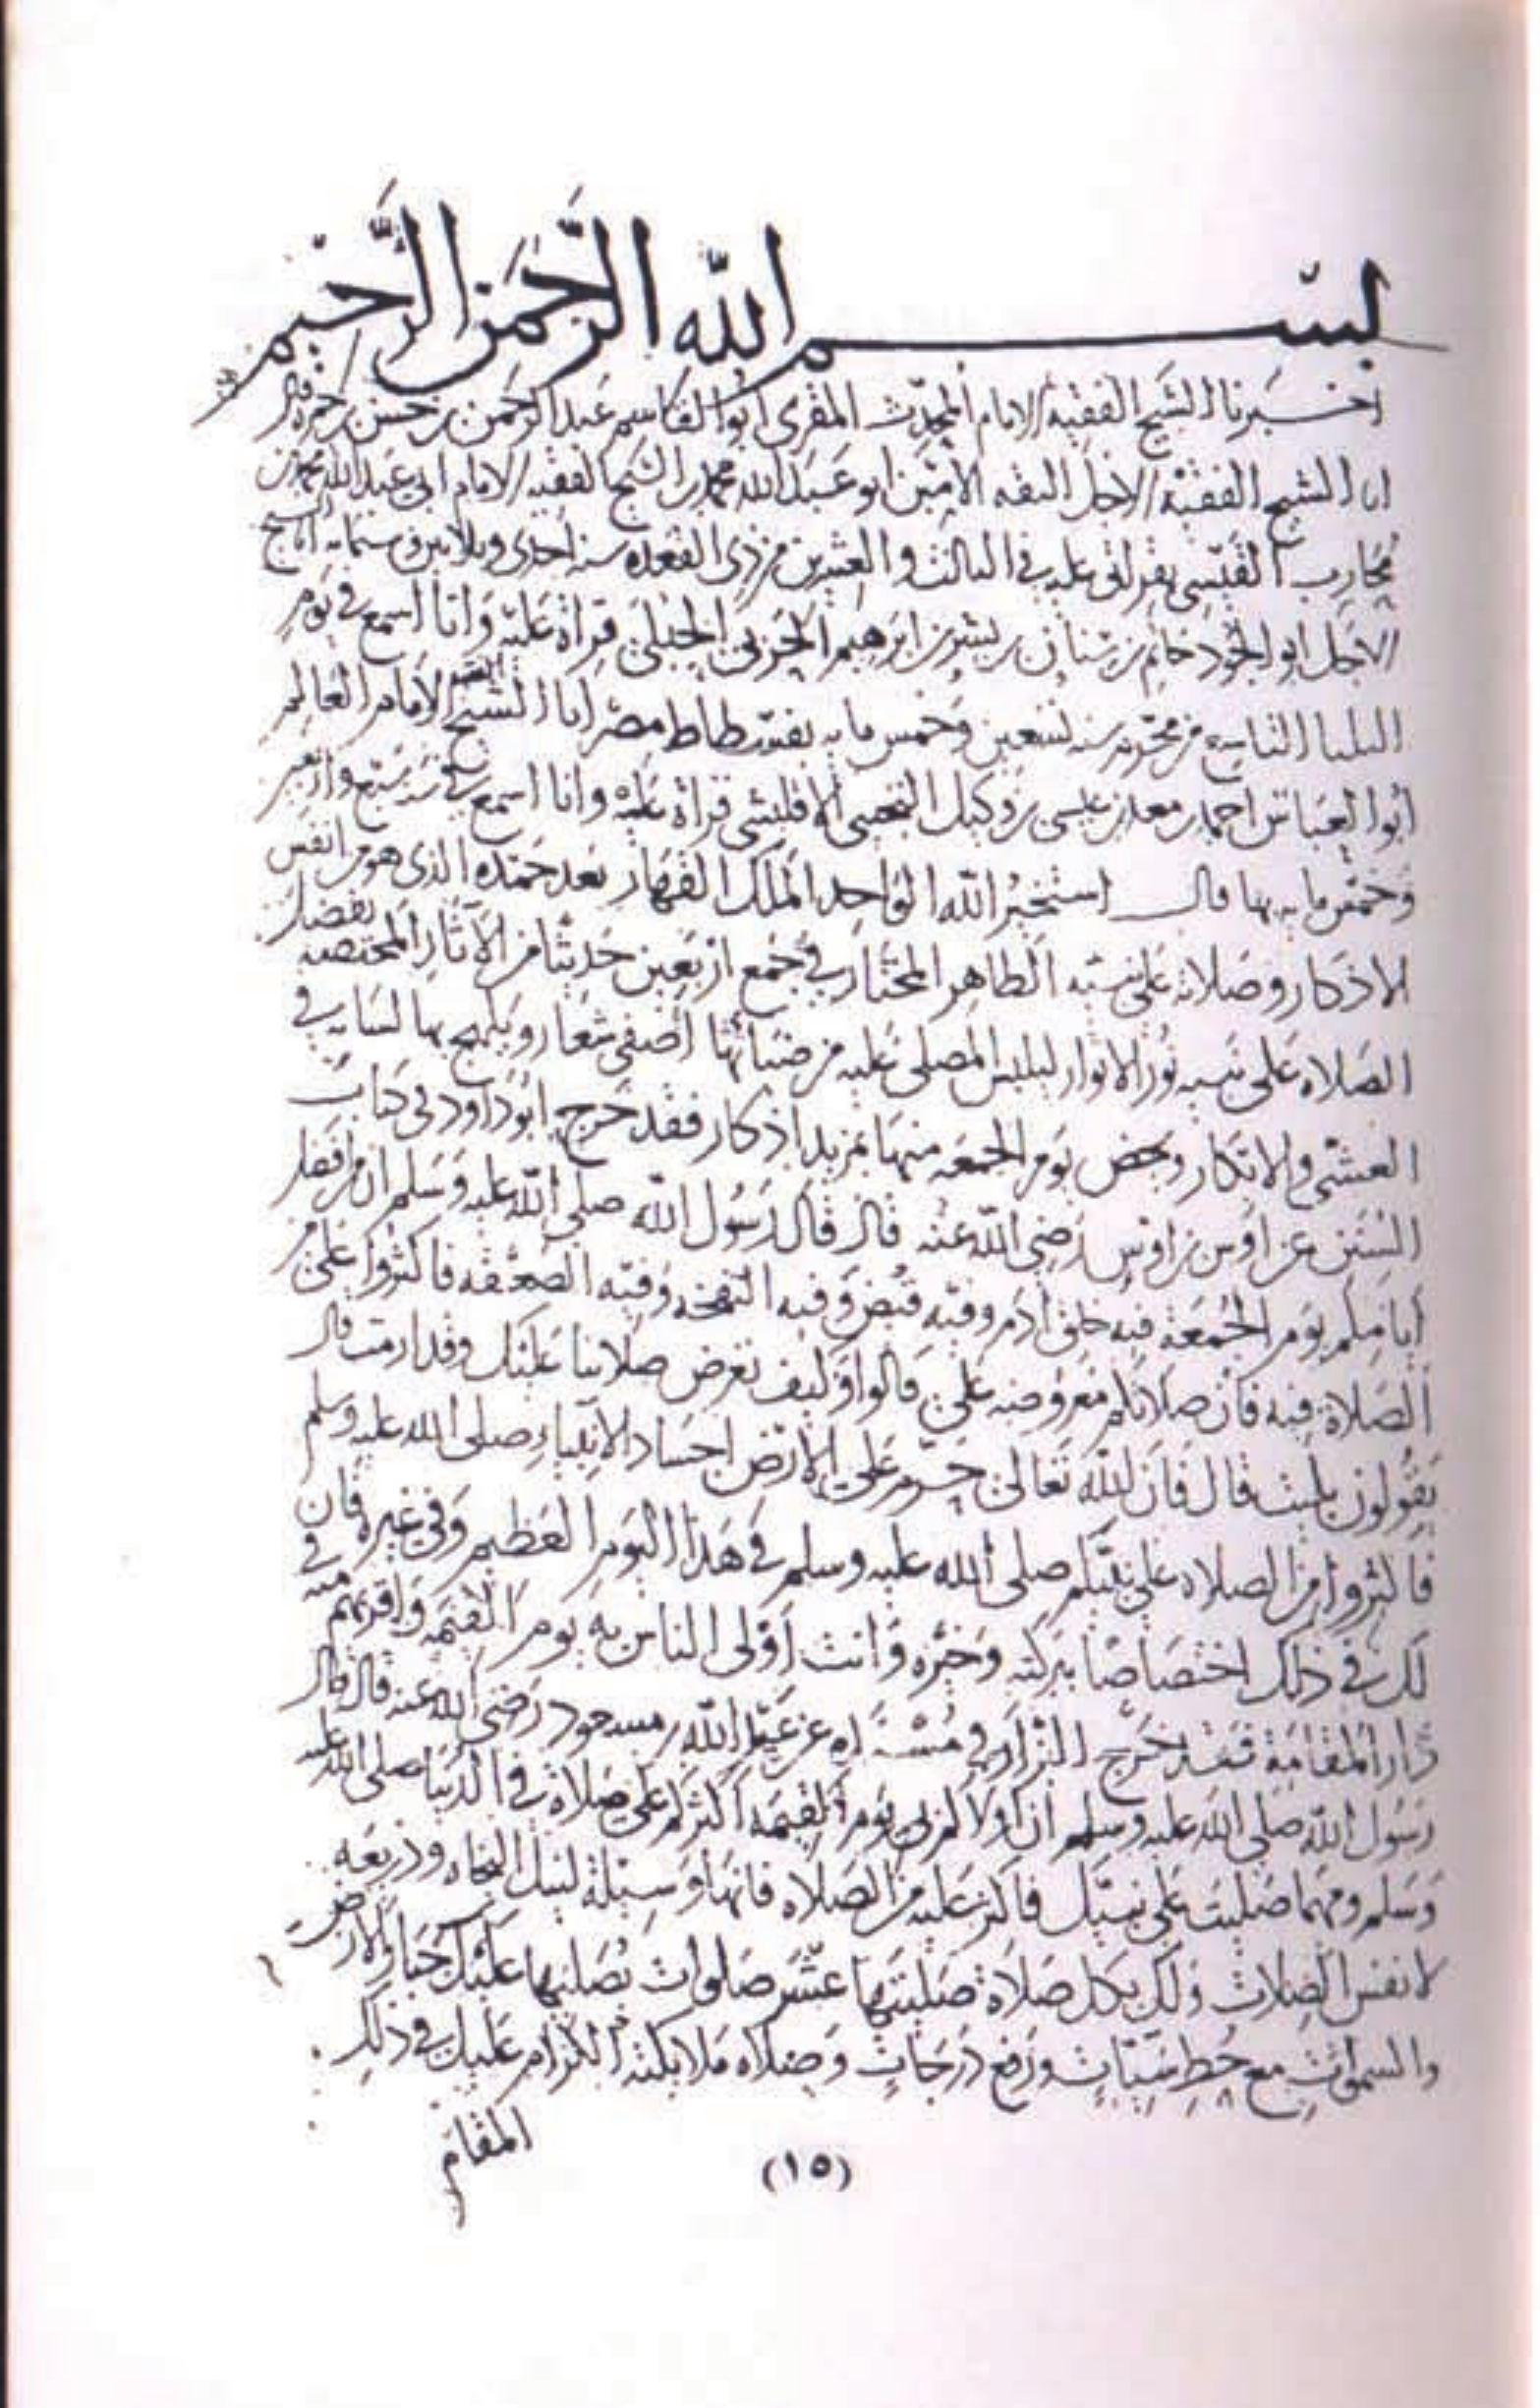 بسم الله الرحمن الرحيم
اخبرنا الشيخ الفقيه الامام المحدث المقرى ابو القاسم عبد الرحمن بن حسن بن
انا الشيخ الفقيه الاجل الثقه الامين ابو عبد الله محمد بن الشيخ الفقيه الامام ابى عبد الله محمد بن
محارب القيسى بقراتى عليه فى الثالث والعشرين من ذى القعده سنه احدى وثلاثين وستمايه انا الشيخ
الاجل ابو الجود حاتم بن سنان بن بشر بن ابرهيم الحربى الحبلى قراة عليه وانا اسمع فى يوم
الثلثا التاسع من محرم سنه تسعين وخمس مايه بفسطاط مصر انا الشيخ الفقيه الامام العالم
أبوا العباس احمد بن معد بن عيسى بن وكيل التجيبى الاقليشى قراة عليه وانا اسمع فى سنه سبع واربعين
وخمس مايه بها قال استخير الله الواحد الملك القهار بعد حمده الذى هو من انفس
الاذكار وصلاته على نبيه الطاهر المختار فى جمع اربعين حديثا من الآثار المختصه بفضل
الصلاه على نبيه نور الانوار ليلبس المصلى عليه من ضيائها أضفى شعار ويلهج بها لسانه فى
العشى والابكار ويخص يوم الجمعه منها بمزيد اذكار فقد خرج ابو داود فى كتاب
السنن عن اوس بن اوس رضى الله عنه قال قال رسول الله صلى الله عليه وسلم ان من افضل
أيامكم يوم الجمعة فيه خلق آدم وفيه قبض وفيه النفخه وفيه الصعقه فاكثروا على من
الصلاة فيه فان صلاتكم معروضه على قالوا وكيف تعرض صلاتنا عليك وقد ارمت قال
يقولون بليت قال فان الله تعالى حرم على الارض اجساد الانبياء صلى الله عليه وسلم
فاكثروا من الصلاه على نبيكم صلى الله عليه وسلم فى هذا اليوم العظيم وفى غيره فان
لك فى ذلك اختصاصا ببركته وخيره وانت اولى الناس به يوم القيمه واقربهم منه فى
دار المقامة فقد خرج البزار فى مسنده عن عبد الله بن مسعود رضى الله عنه قال قال
رسول الله صلى الله عليه وسلم ان اولاكم بى يوم القيمه اكثركم على صلاة فى الدنيا صلى الله عليه
وسلم ومهما صليت على نبيك فاكثر عليه من الصلاه فانها وسيلة لنيل النجاه وذريعه
لانفس الصلات ولك بكل صلاة صليتها عشر صلوات يصليها عليك جبار الارض
والسموات مع حط سيئات ورفع درجات وصلاه ملائكته الكرام عليك فى ذلك
المقام
(١٥)